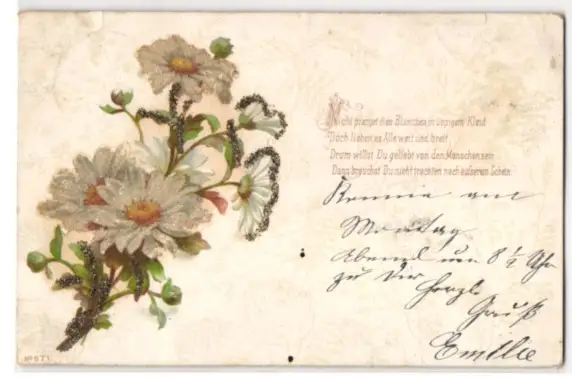 Nicht pranget dies Blümchen in üppigem Kleid
Doch lieben es Alle weit und breit
Drum willst Du geliebt von den Menschen sein
Dann brauchst Du nicht trachten nach äußerem Schein.
Komme am
Montag
Abend um 8 1/2 Uhr
zu Dir
Herzl.
Gruß
Emilie
No 671